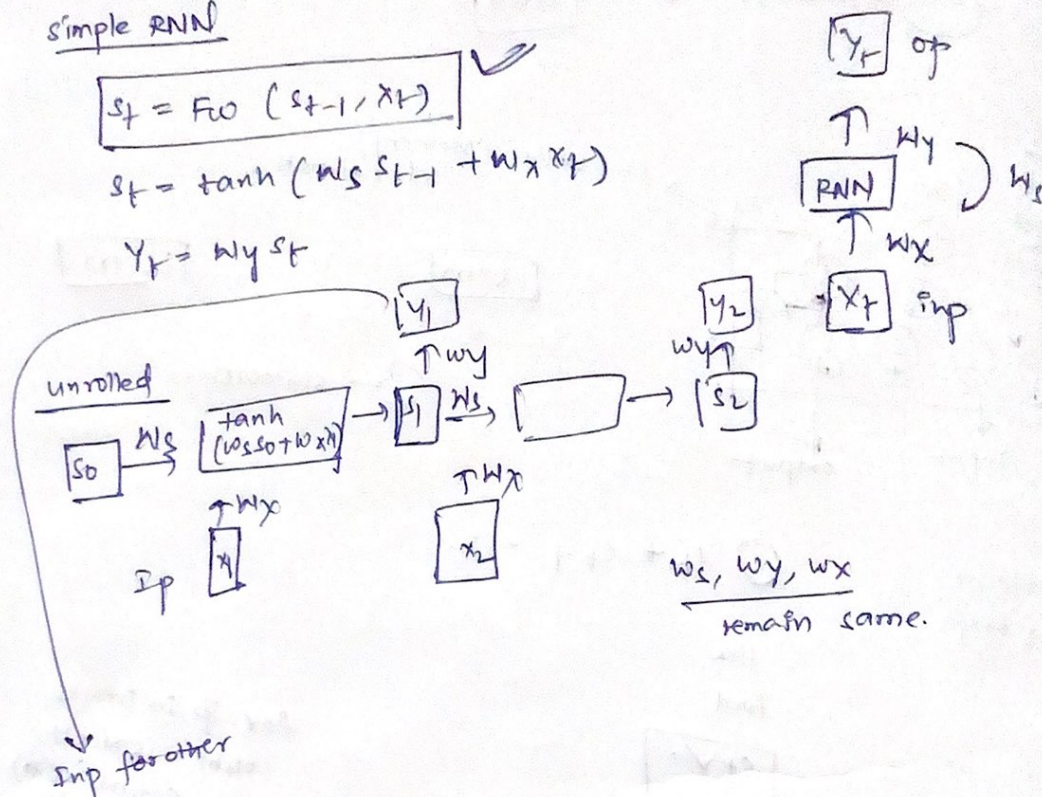 simple RNN
St = Fw (St-1, Xt)
St = tanh (Ws St-1 + Wx Xt)
Yt = Wy St
Yt op
Wy
RNN
Ws
Wx
Xt inp
Y1
Y2
Wy
Wy
unrolled
S0
Ws
tanh
(WsS0+Wx X1)
S1
Ws
S2
Wx
Wx
Ip
X1
X2
Ws, Wy, Wx
remain same.
Inp for other